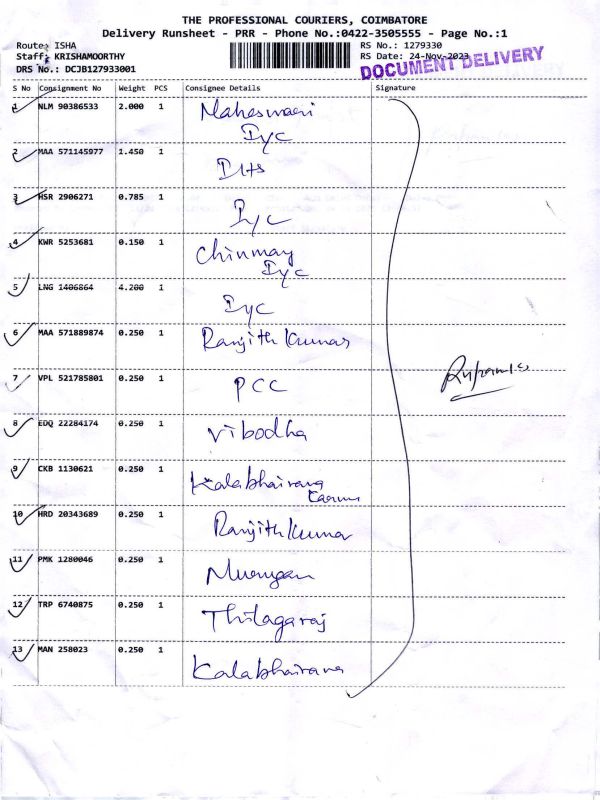 THE PROFESSIONAL COURIERS, COIMBATORE
Delivery Runsheet - PRR - Phone No.:0422-3505555 - Page No.:1
Route: ISHA
RS No.: 1279330
Staff: KRISHAMOORTHY
RS Date: 24-Nov-2023
DRS No.: DCJB127933001
DOCUMENT DELIVERY
S No Consignment No Weight PCS Consignee Details Signature
1 NLM 90386533 2.000 1 Maheswari
Iyc
2 MAA 571145977 1.450 1 IHS
3 HSR 2906271 0.785 1 Iyc
4 KWR 5253681 0.150 1 Chinmay
Iyc
5 LNG 1406864 4.200 1 Iyc
6 MAA 571889874 0.250 1 Ranjith Kumar
7 VPL 521785801 0.250 1 PCC
8 EDQ 22284174 0.250 1 Vibodha
9 CKB 1130621 0.250 1 Kalabhairava
Karma
10 HRD 20343689 0.250 1 Ranjith Kumar
11 PMK 1280046 0.250 1 Murugan
12 TRP 6740875 0.250 1 Thilagaraj
13 MAN 258023 0.250 1 Kalabhairava